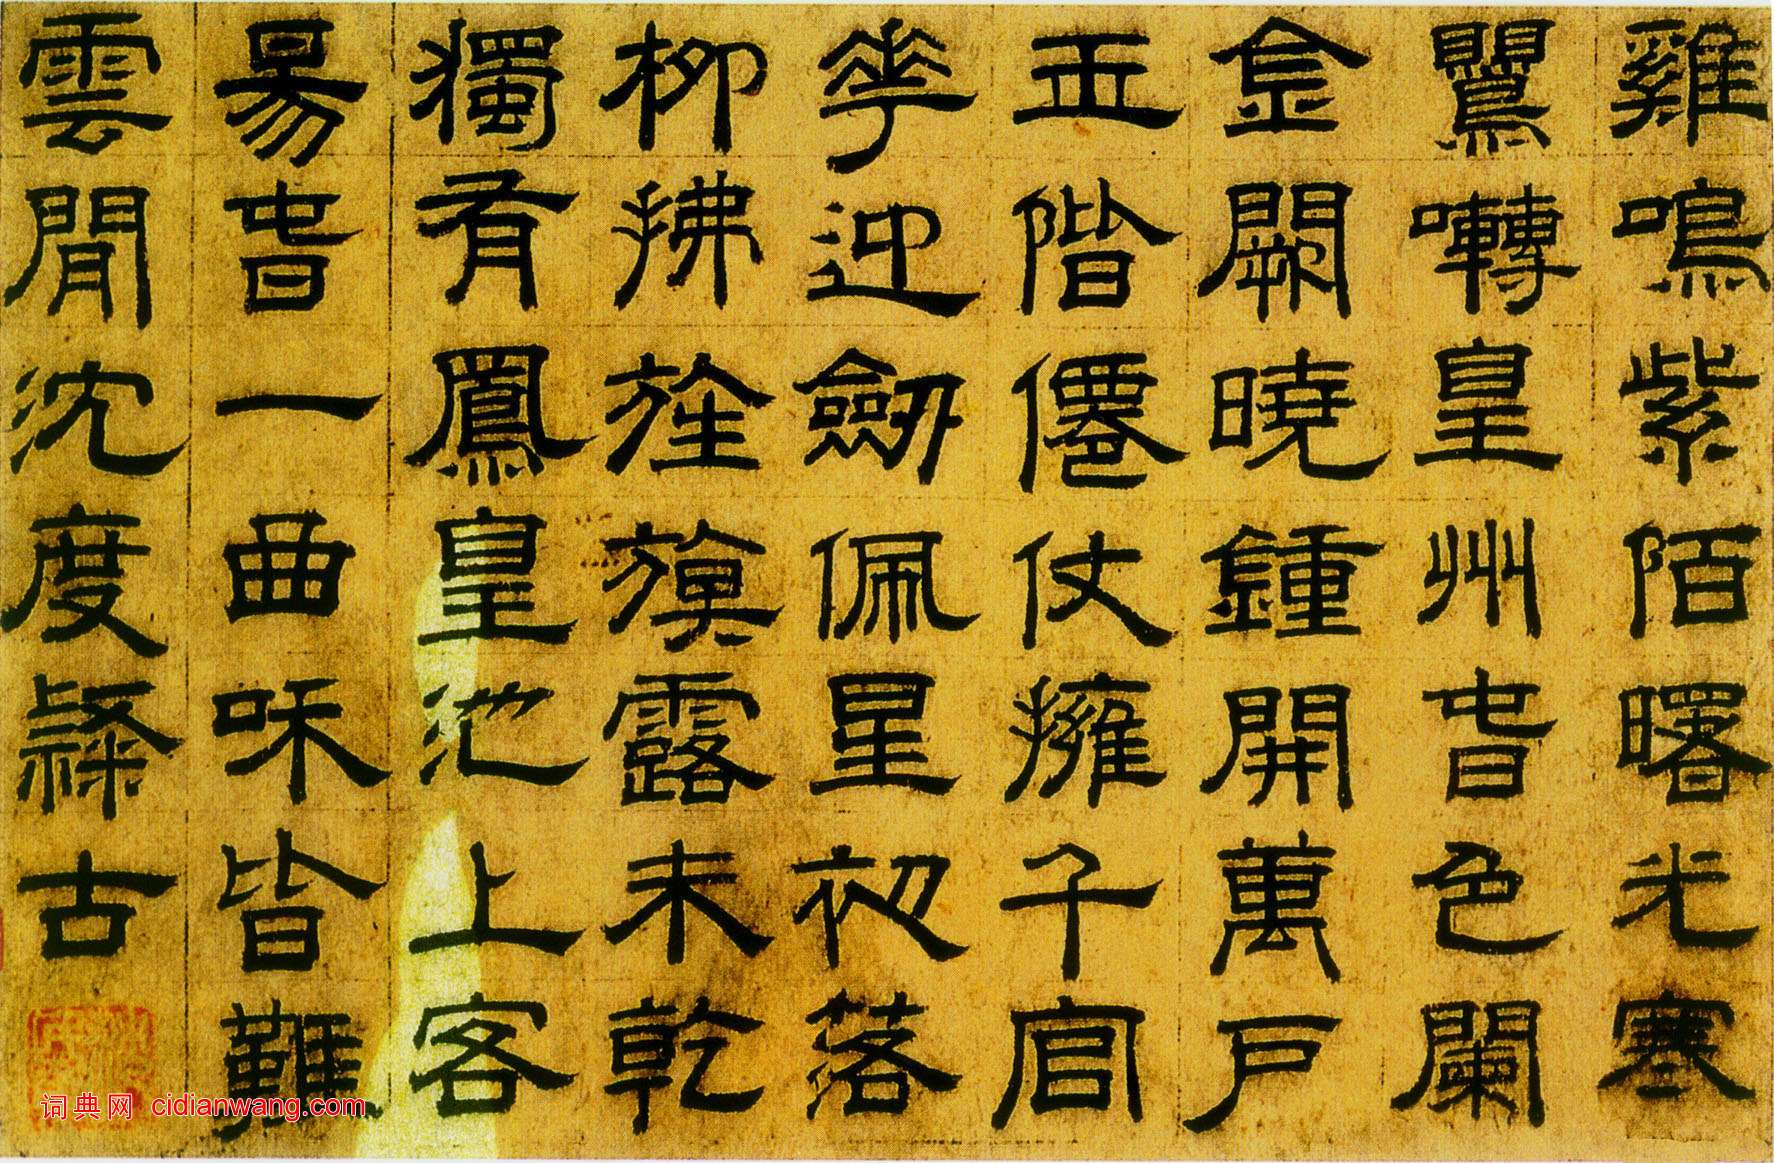 雞鳴紫陌曙光寒
鸎囀皇州旾色闌
金闕曉鍾開萬戶
玉階僊仗擁千官
花迎劒佩星初落
柳拂旌旗露未乾
獨有鳳皇池上客
昜旾一曲和皆難
雲閒沈度隸古
词典网 cidianwang.com